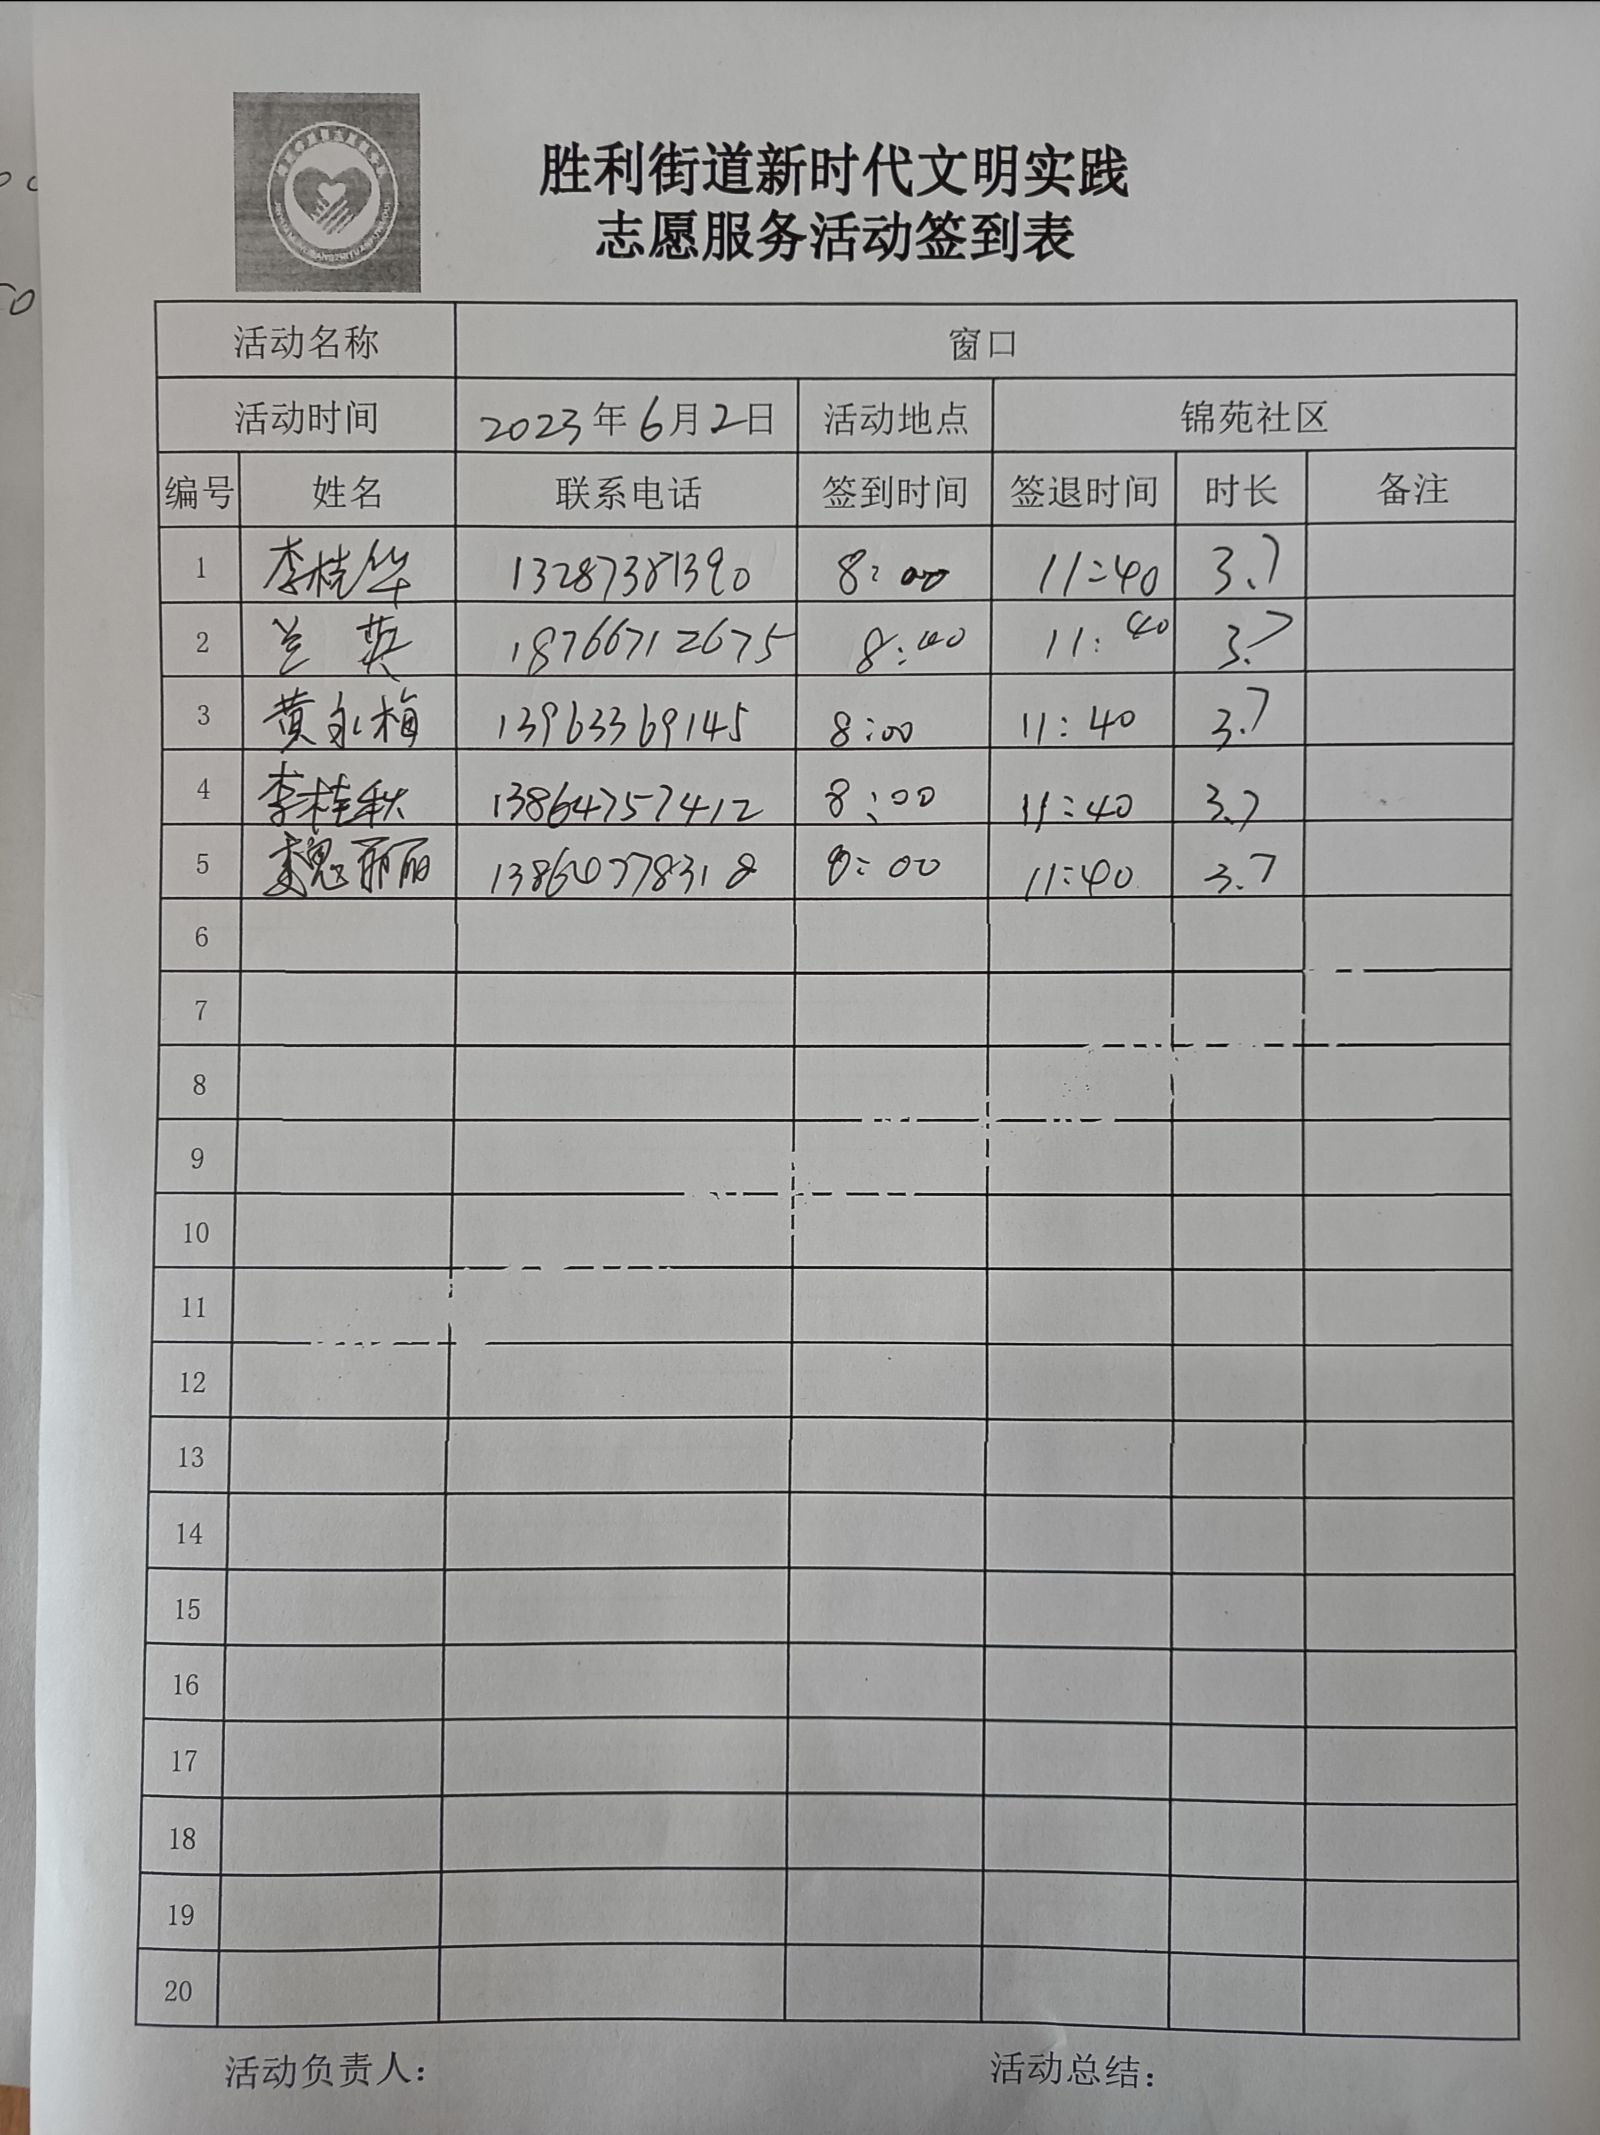 胜利街道新时代文明实践
志愿服务活动签到表
活动名称 窗口
活动时间 2023年6月2日 活动地点 锦苑社区
编号 姓名 联系电话 签到时间 签退时间 时长 备注
1 李桂华 13287381390 8:00 11:40 3.7
2 兰英 18766712675 8:00 11:40 3.7
3 黄永梅 13963369145 8:00 11:40 3.7
4 李桂秋 13864757412 8:00 11:40 3.7
5 魏丽丽 13864778318 8:00 11:40 3.7
6
7
8
9
10
11
12
13
14
15
16
17
18
19
20
活动负责人： 活动总结：